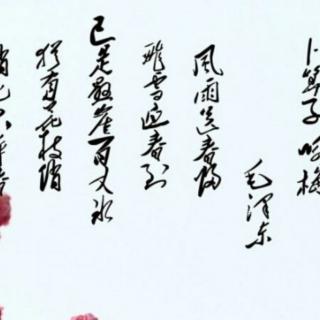 卜算子 咏梅
毛泽东
风雨送春归
飞雪迎春到
已是悬崖百丈冰
犹有花枝俏
俏也不争春